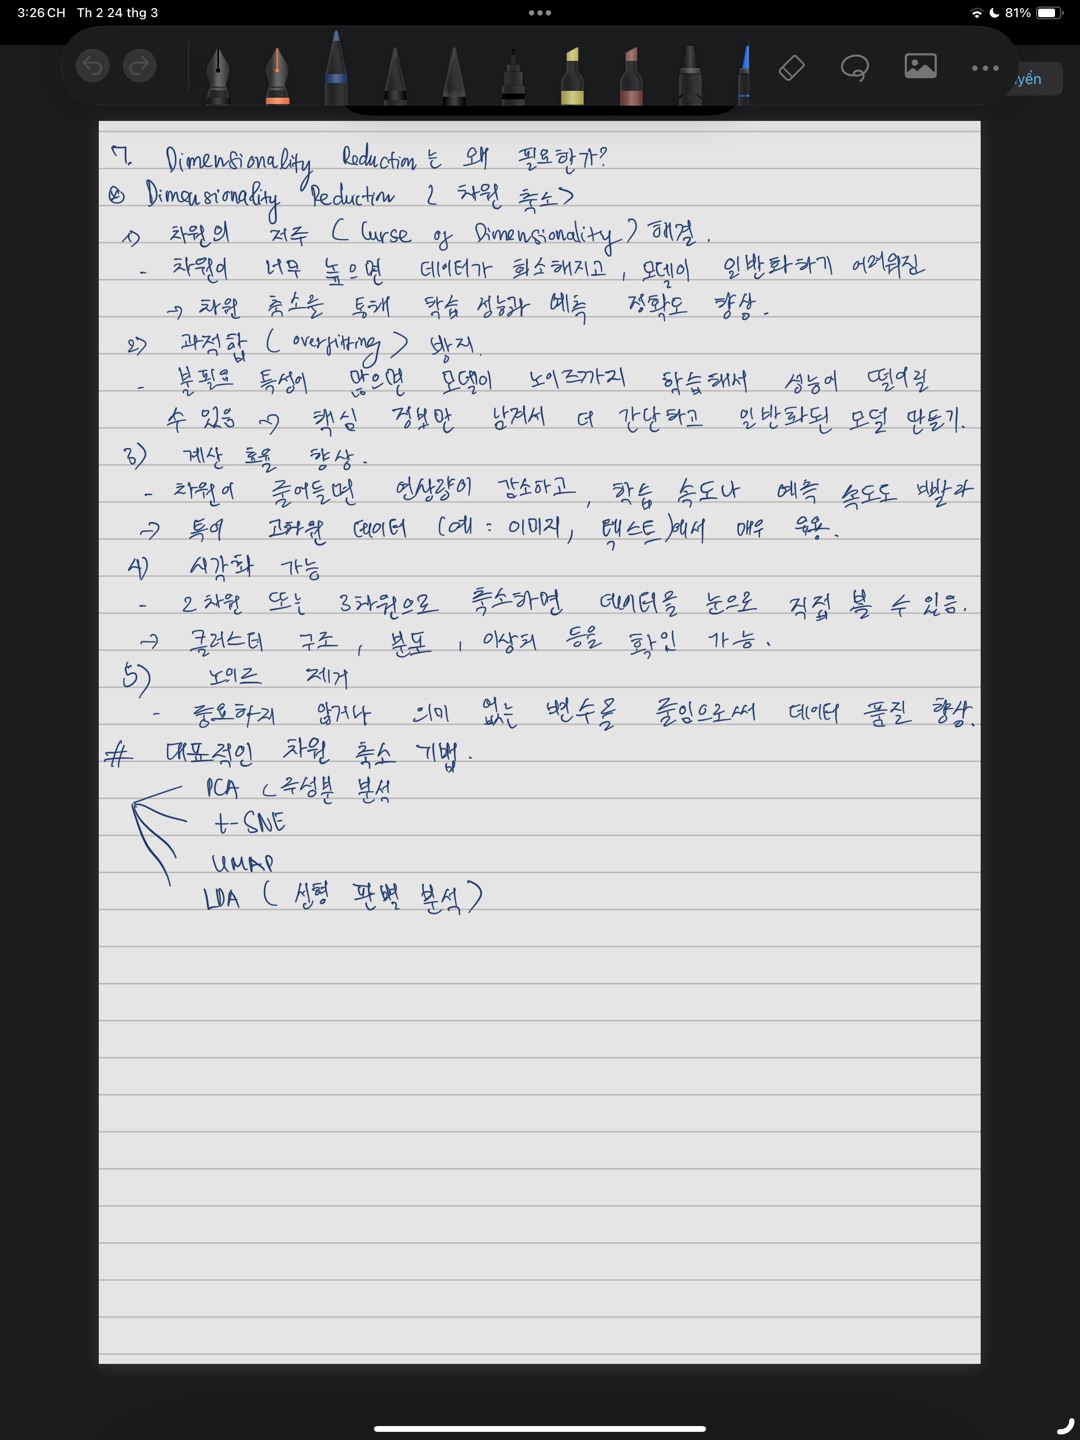 3:26 CH Th 2 24 thg 3
81%
yển
7. Dimensionality Reduction는 왜 필요한가?
Dimensionality Reduction < 차원 축소>
1) 차원의 저주 (Curse of Dimensionality) 해결.
- 차원이 너무 높으면 데이터가 희소해지고, 모델이 일반화하기 어려워짐
→ 차원 축소를 통해 학습 성능과 예측 정확도 향상.
2) 과적합 (overfitting) 방지.
- 불필요 특성이 많으면 모델이 노이즈까지 학습해서 성능이 떨어질
수 있음 → 핵심 정보만 남겨서 더 간단하고 일반화된 모델 만들기.
3) 계산 효율 향상.
- 차원이 줄어들면 연산량이 감소하고, 학습 속도나 예측 속도도 빨라
→ 특히 고차원 데이터 (예: 이미지, 텍스트)에서 매우 유용.
4) 시각화 가능
- 2차원 또는 3차원으로 축소하면 데이터를 눈으로 직접 볼 수 있음.
→ 클러스터 구조, 분포, 이상치 등을 확인 가능.
5) 노이즈 제거
- 중요하지 않거나 의미 없는 변수를 줄임으로써 데이터 품질 향상.
# 대표적인 차원 축소 기법.
PCA ( 주성분 분석
t-SNE
UMAP
LDA ( 선형 판별 분석)